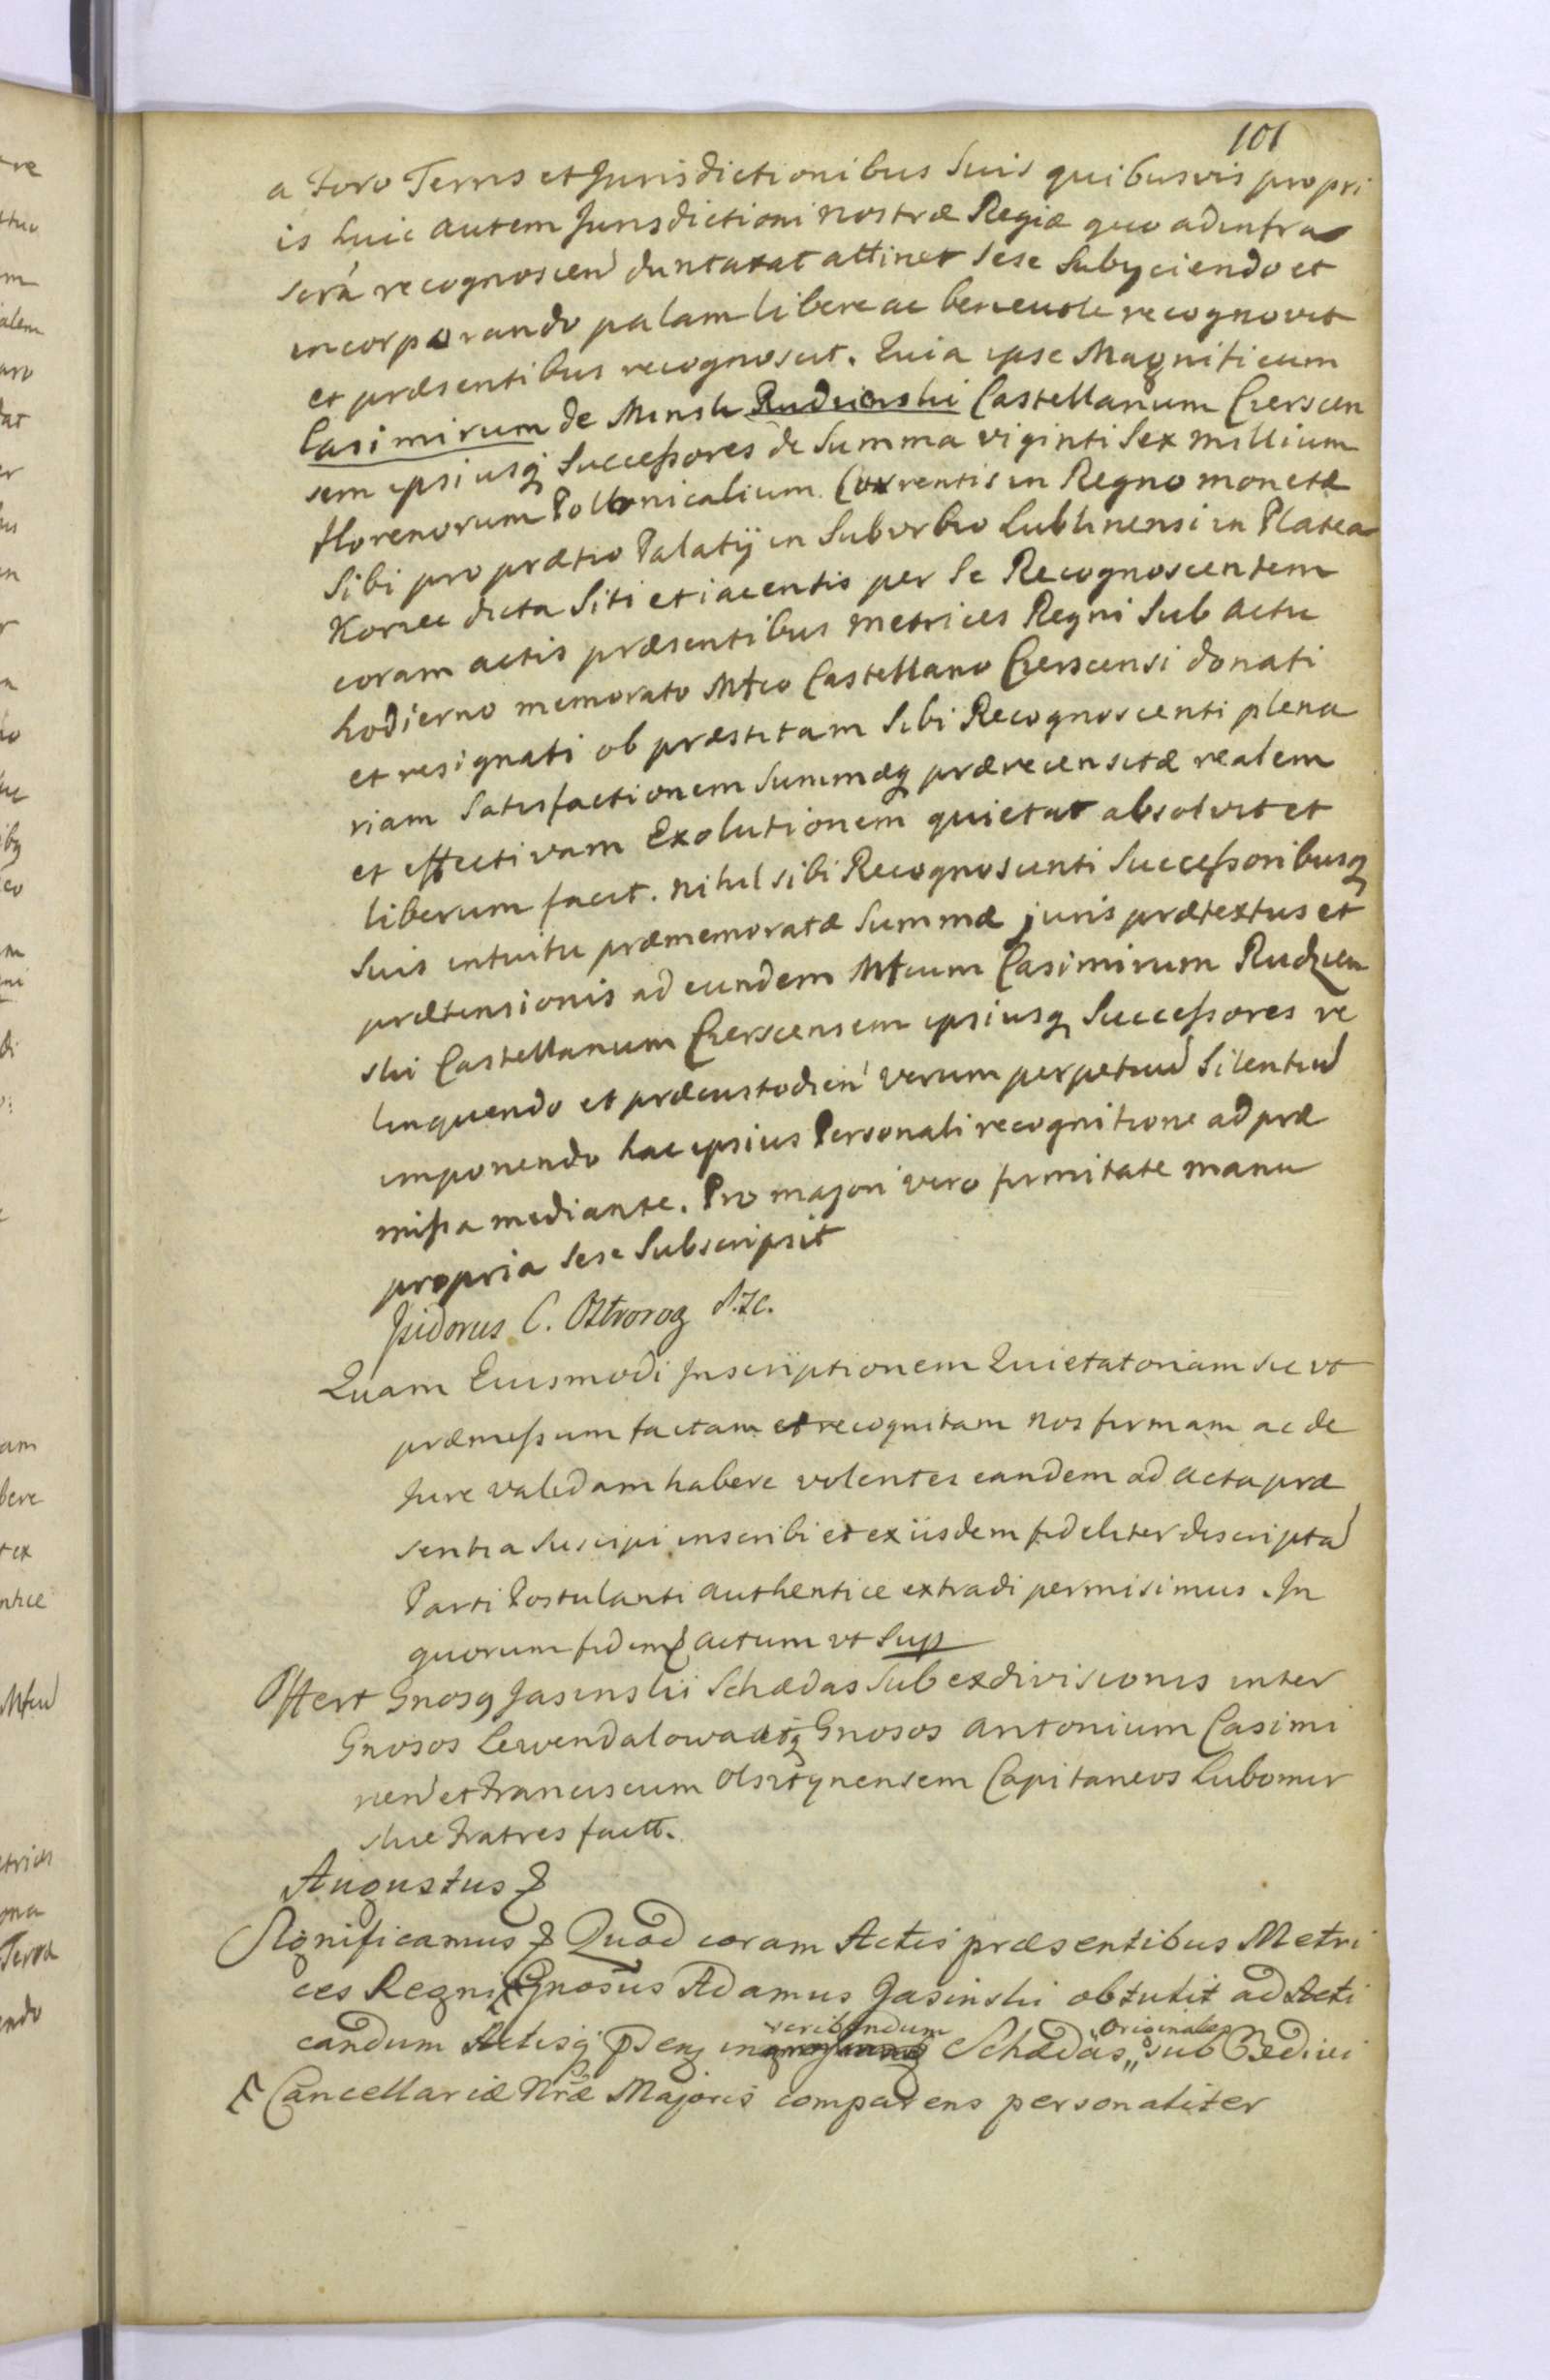 101
a Foro Terris et Jurisdictionibus Suis quibusvis propri
is huic autem Jurisdictioni nostræ Regiæ quo ad infra
scrã recognoscen duntaxat attinet sese Subyciendo et
incorporando palam libere ac benevole recognovit
et præsentibus recognoscit. Quia ipse Magnificum
Casimirum de Minsk Rudzienski Castellanum Czerscen
sem ipsiusq Successores de Summa viginti Sex millium
florenorum Pollonicalium Currentis in Regno monetæ
Sibi pro prætio Palatij in Suburbio Lublinensi in Platea
Korzec dicta Siti et iacentis per Se Recognoscentem
coram actis præsentibus metrices Regni Sub actu
hodierno memorato Mfco Castellano Czerscensi donati
et resignati ob præstitam Sibi Recognoscenti plena
riam Satisfactionem Summæq prærecensitæ realem
et effectivam Exolutionem quietat absolvit et
liberum facit. nihil sibi Recognoscenti Successoribusq
Suis intuitu præmemoratæ Summæ juris prætextus et
prætensionis ad eundem Mfcum Casimirum Rudzien
ski Castellanum Czerscensem ipsiusq Successores re
linquendo et præcustodien verum perpetuu Silentiu
imponendo hac ipsius Personali recognitione ad præ
missa mediante. Pro majori vero firmitate manu
propria Sese Subscripsit
Isidorus C. Oztrorog
Quam Eiusmodi Inscriptionem Quietatoriam sic ut
præmissum factam et recognitam nos firmam ac de
Jure validam habere volentes eandem ad acta præ
sentia Suscipi inscribi et ex iisdem fideliter descripta
Parti Postulanti authentice extradi permisimus. In
quorum fidem & actum ut Sup
Offert Gnosq Jasinskii Schædas Sub exdivisionis inter
Gnosos Lewendalowa Gnosos Antonium Casimi
rien et Franciscum Olsztynensem Capitaneos Lubomir
skie Fratres factt.
Augustus &
Significamus & Quod coram Actis præsentibus Metri
ces Regni Gnosus Adamus Jasinski obtulit ad Acti
candum Actisq in scribendum Schædas originales sub Exdivi
Cancellariæ Nræ Majoris comparens personaliter